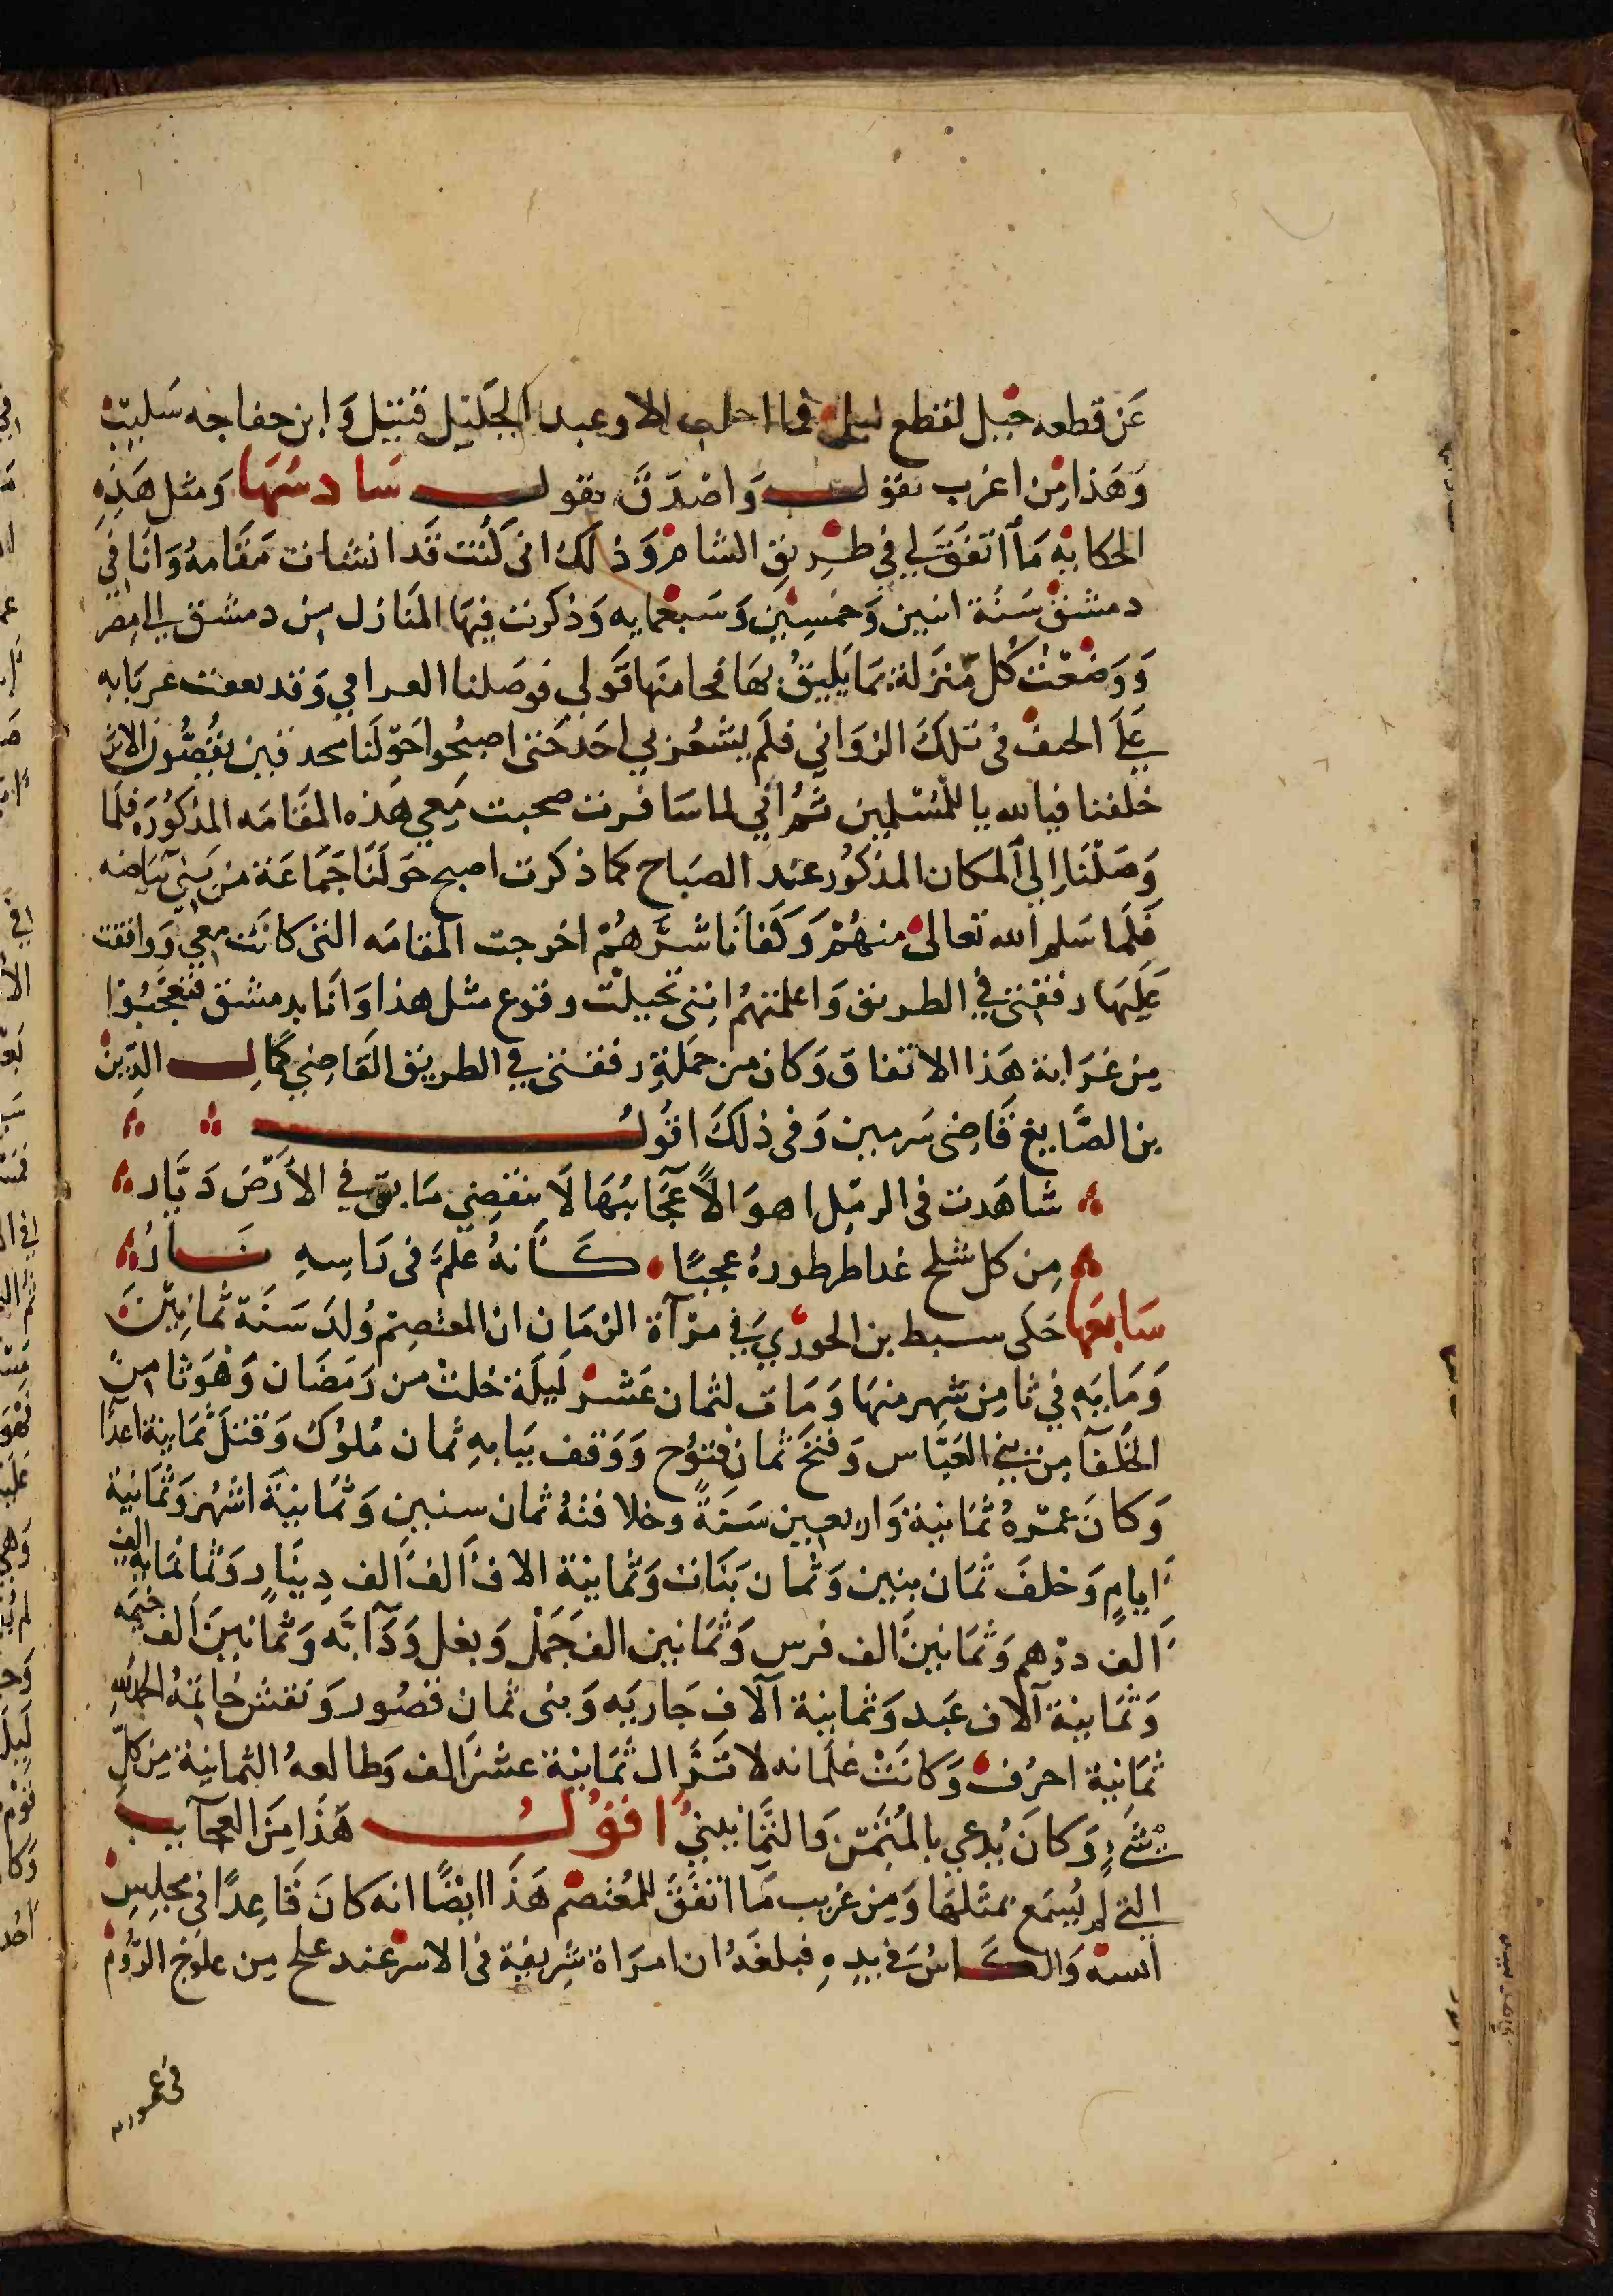 عَن قطعه خيل لقطع ليل فما احلى الا وعبد الجَليل قتيل وَابن خفاجه سَليب
وَهَذا مِن اغرب نقول وَاصْدق نقول سَادسُهَا وَمثل هَذِه
الحكايه مَا اتفَقَ لي في طريق الشام وَذلكَ انى كُنت قَد انشات مَقَامهُ وَانَا في
دمشق سَنَة اثنين وَخمسِين وَسَبعمايه وَذكرت فيهَا المنَازل من دمشق الى مصر
وَوَصَفْتُ كُل مَنزلة بمَا يَليقُ بهَا فجا منهَا قَولي فوصَلنا العرامي وَقد بعقت عربَابه
عَلَى الحيف في تلكَ الروَابي فلَم يشعُر بي احَد حَتى اصبحُوا حَولنَا محدقين يقُصُّون الاثر
خلفنا فيالله يا للمُسْلمين ثمُ اني لما سَافرت صحبت مَعي هَذه المقَامَه المذكُورَه فلَما
وَصَلْنَا اِلي المكان المذكُور عند الصَباح كما ذكرت اصبح حَولَنَا جَمَاعَة من بَني بيَاضه
فَلَما سَلم الله تعالى منهُمْ وَكفَانَا شَرَّهُمْ اخرجت المقامَه التى كانَت معي وَوافقت
عَليهَا رفقتى في الطريق وَاعلمتهُم اِننى تخيلت وقوع مثل هذا وَانَا بدمشق فتعجَّبُوا
مِن غرَابة هَذا الاتفاق وَكان من جملة رفقتى في الطريق القَاضِي كمالِ الدّين
بن الصَّايغ قَاضى سَرمين وَفى ذلكَ اقُولُ
شاهَدت فى الرمْل اهوَالاً عجَايبُهَا لَا تنقضي مَا بقى في الأرْض دَيَّار
مِن كل شلح غدا طرطورهُ عجبًا كَأنهُ علمٌ فى رَاسِهِ نَارُ
سَابعهَا حَكى سبط بن الجوزي في مرآة الزمَان ان المعتصِم وُلدَ سَنَة ثمانِيْنَ
وَمَايَه في ثامِن شهر منهَا وَمَات لثمان عَشر لَيلَة خلتْ من رمَضَان وَهْوَ ثامنُ
الخُلَفَآ مِن بني العَبَّاس وَفتحَ ثمان فتوُح وَوَقف بَبابهِ ثمان مُلوُك وَقتلَ ثمَانية اعدآ
وَكانَ عمْرهُ ثمانية وَاربعين سَنَةً وخلافتهُ ثمان سنين وَثمَانيَةَ اشهُر وَثمَانية
اَيامٍ وَخلفَ ثمَان بنين وَثمان بَنَات وَثمانية الاف اَلف اَلف دِينَارٍ وَثمانمَايه الف
اَلف درْهم وَثمَانينَ اَلف فرس وَثمَانين الف جَمَل وَبغل وَدَآبَّه وَثمانين اَلف خيَمه
وَثمَانية آلاف عَبد وَثمانية آلاف جَاريَه وَبنى ثمان قصُور وَنقش خَاتمهُ الحمْد للهِ
ثمَانية احرُف وَكانَتْ غلمَانه لا تَزَال ثمَانية عشر اَلف وَطالعهُ الثمانِية مِن كلّ
شَيْءٍ وَكانَ يُدعي بالمُثمّن وَالثمَانينيُ اقوُلُ هَذَا مِنَ العجآيب
التي لم يُسمَع بمثلهَا وَمِن غريب مَا اتفقَ للمعُتصم هَذَا ايضًا انه كانَ قَاعِدًا في مجلِسِ
انسه وَالكَاسُ في يدِهِ فبلغَهُ ان امرَاة شريفة فى الاسر عند علج مِن علُوج الرُّوم
في عمورية